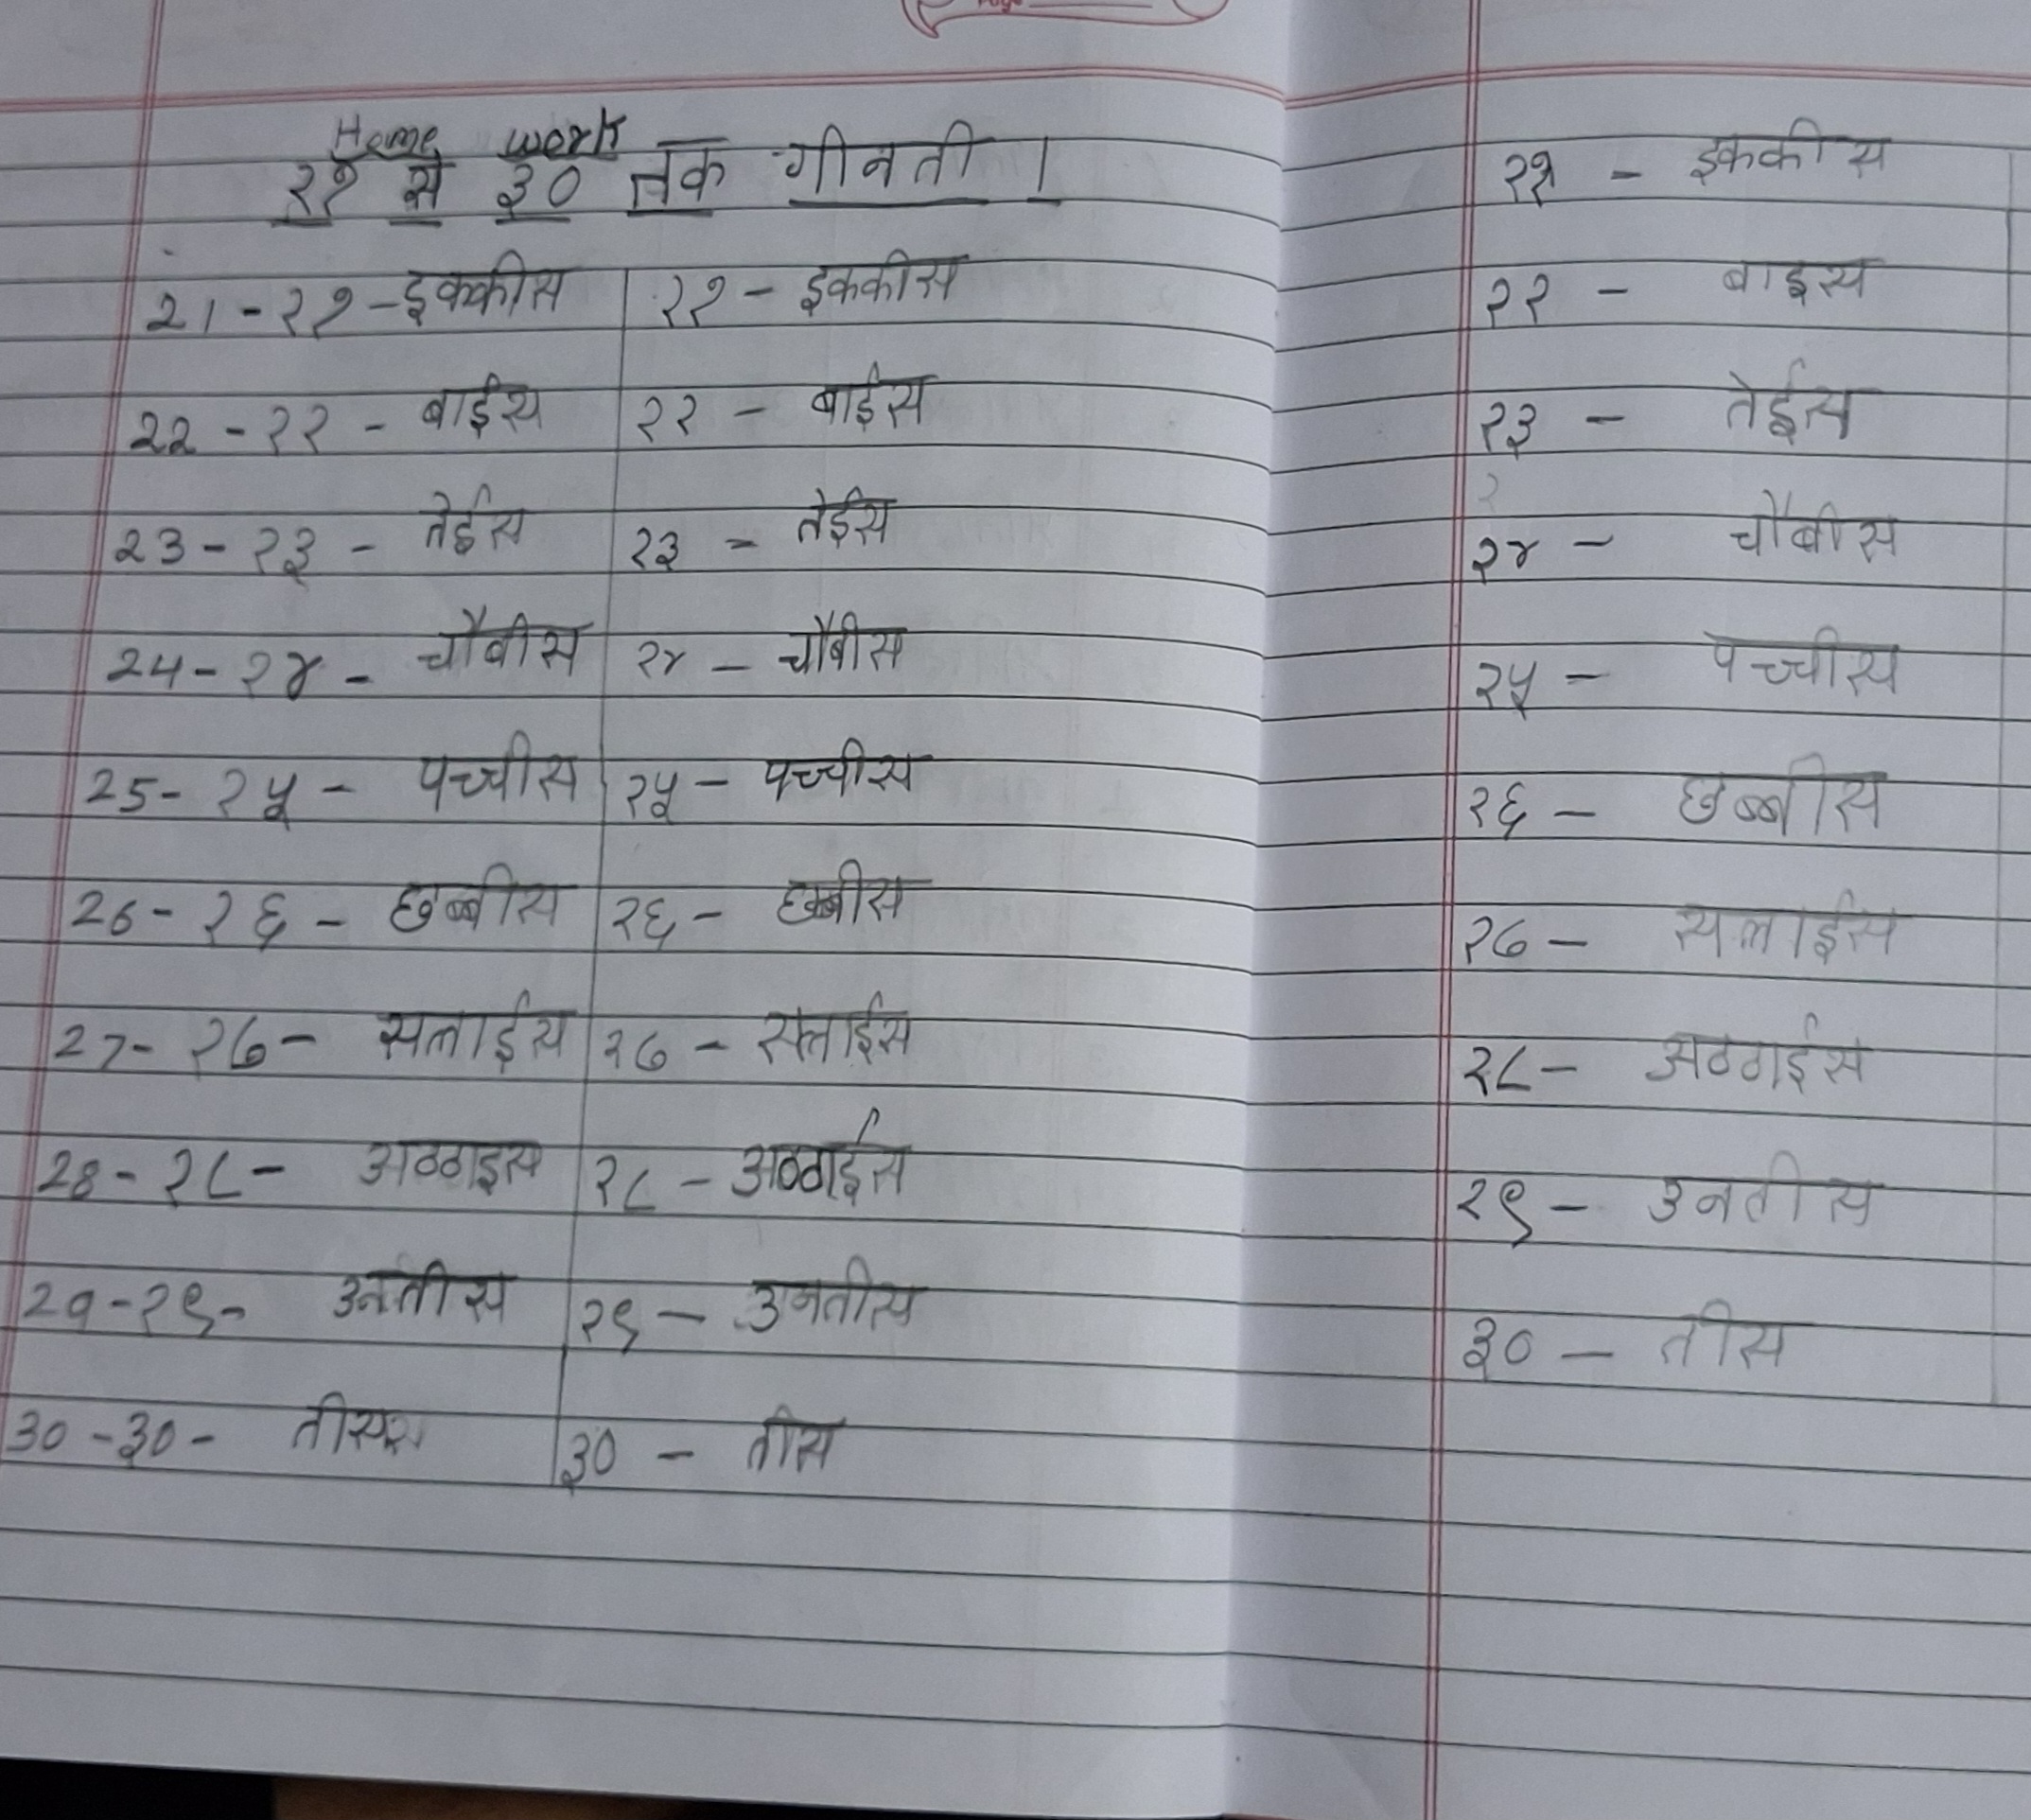 Home work
२१ से ३० तक गीनती ।
21 - २१ - इक्कीस २१ - इककीस
22 - २२ - बाईस २२ - बाईस
23 - २३ - तेईस २३ - तेईस
24 - २४ - चौबीस २४ - चौबीस
25 - २५ - पच्चीस २५ - पच्चीस
26 - २६ - छब्बीस २६ - छब्बीस
27 - २७ - सत्ताईस २७ - सत्ताईस
28 - २८ - अठ्ठाइस २८ - अठ्ठाईस
29 - २९ - उनतीस २९ - उनतीस
30 - ३० - ३० - तीस
२१ - इककीस
२२ - बाइस
२३ - तेईस
२४ - चौबीस
२५ - पच्चीस
२६ - छब्बीस
२७ - सत्ताईस
२८ - अठठाईस
२९ - उनतीस
३० - तीस